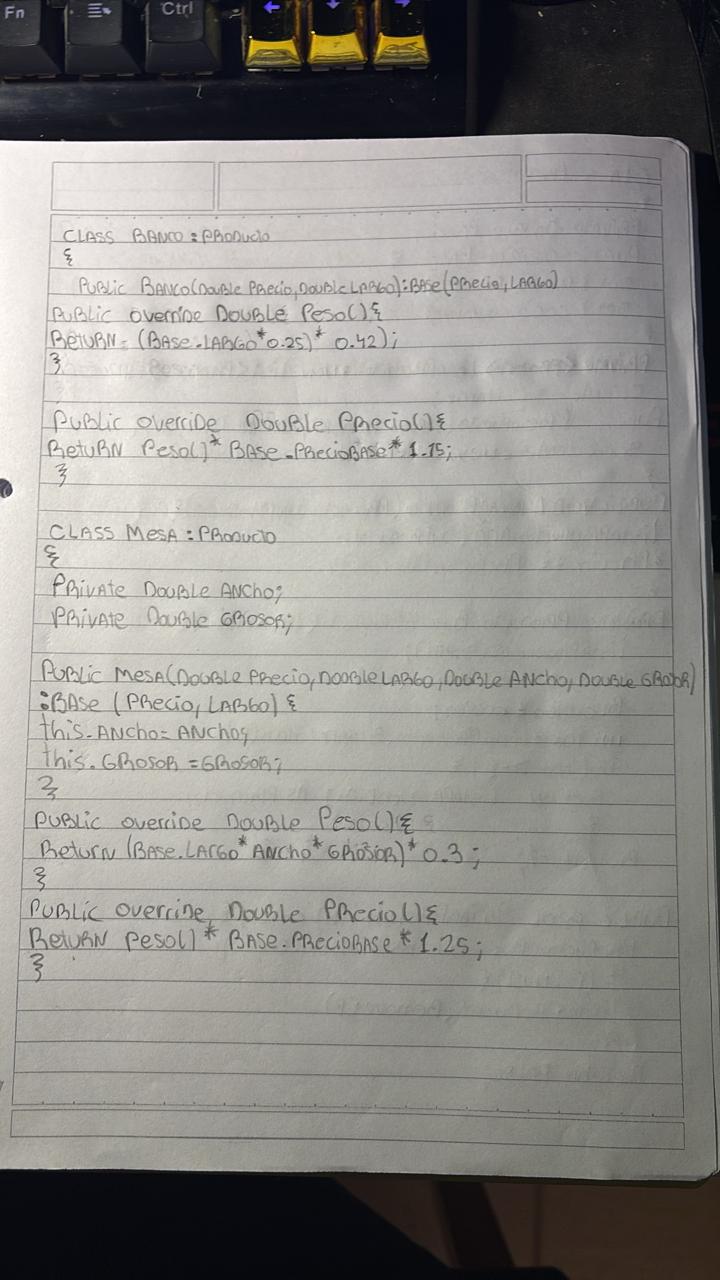 Fn
Ctrl
CLASS BANCO : PRODUCTO
{
PUBLIC BANCO(DOUBLE PRECIO, DOUBLE LARGO):BASE(PRECIO, LARGO)
PUBLIC OVERRIDE DOUBLE PESO(){
RETURN = (BASE.LARGO*0.25)* 0.42);
}
PUBLIC OVERRIDE DOUBLE PRECIO(){
RETURN PESO()* BASE.PRECIOBASE* 1.15;
}
CLASS MESA : PRODUCTO
{
PRIVATE DOUBLE ANCHO;
PRIVATE DOUBLE GROSOR;
PUBLIC MESA(DOUBLE PRECIO, DOOBLE LARGO, DOUBLE ANCHO, DOUBLE GROSOR)
:BASE (PRECIO, LARGO) {
this.ANCHO = ANCHO;
this.GROSOR = GROSOR;
}
PUBLIC OVERRIDE DOUBLE PESO(){
Return (BASE.LARGO* ANCHO* GROSOR)* 0.3;
}
PUBLIC OVERRIDE DOUBLE PRECIO(){
RETURN PESO() * BASE.PRECIOBASE * 1.25;
}